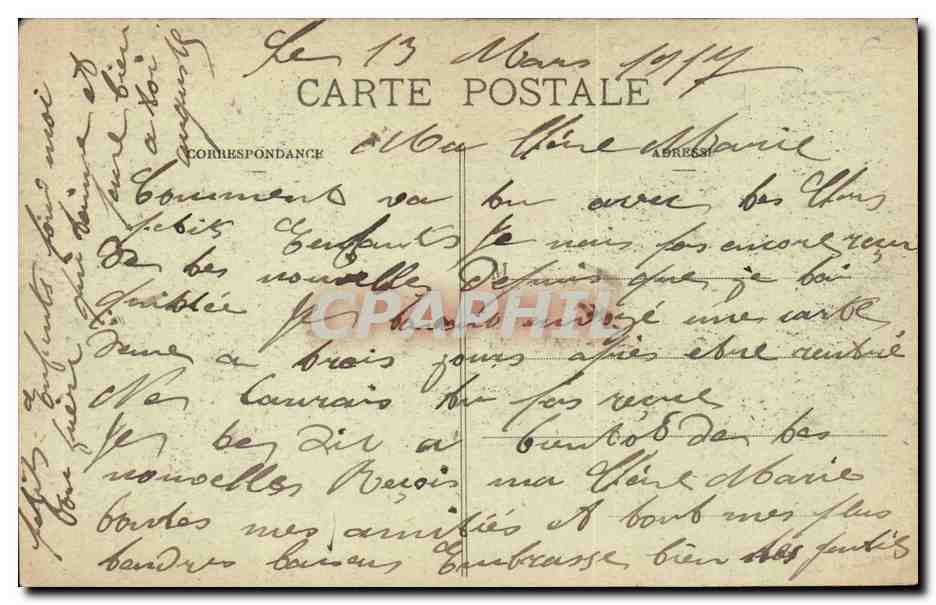 Le 13 Mars 1917
CARTE POSTALE
CORRESPONDANCE
ADRESSE
Ma Chère Marie
Comment va tu avec tes Chers
petits Enfants Je nous pas encore reçu
de tes nouvelle Depuis que je tai
quittée Je tavait une carte
deux a trois jours après etre rentré
Ne laurais tu pas reçue
Je te dit a bientôt de tes
nouvelles Reçois ma Chère Marie
toutes mes amitiés et tout mes plus
tendres baisers Embrasse bien tes petits
petits enfants pour moi
Ton frère qui taime et
pense bien
a toi
auguste
CPAPHIL